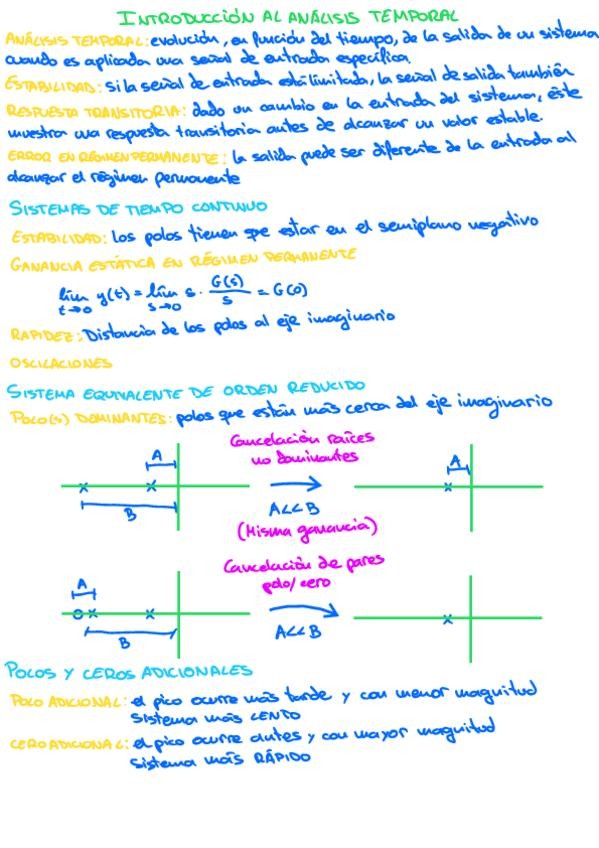 INTRODUCCIÓN AL ANÁLISIS TEMPORAL
ANÁLISIS TEMPORAL: evolución, en función del tiempo, de la salida de un sistema
cuando es aplicada una señal de entrada específica.
ESTABILIDAD: si la señal de entrada está limitada, la señal de salida también
RESPUESTA TRANSITORIA: dado un cambio en la entrada del sistema, éste
muestra una respuesta transitoria antes de alcanzar un valor estable.
ERROR EN RÉGIMEN PERMANENTE: la salida puede ser diferente de la entrada al
alcanzar el régimen permanente
SISTEMAS DE TIEMPO CONTINUO
ESTABILIDAD: los polos tienen que estar en el semiplano negativo
GANANCIA ESTÁTICA EN RÉGIMEN PERMANENTE
lím t→0 y(t) = lím s→0 s · G(s)/s = G(0)
RAPIDEZ: Distancia de los polos al eje imaginario
OSCILACIONES
SISTEMA EQUIVALENTE DE ORDEN REDUCIDO
POLO(S) DOMINANTES: polos que están más cerca del eje imaginario
Cancelación raíces
no dominantes
A
B
A<<B
A
(Misma ganancia)
Cancelación de pares
polo/cero
A
B
A<<B
POLOS Y CEROS ADICIONALES
POLO ADICIONAL: el pico ocurre más tarde y con menor magnitud
Sistema más LENTO
CERO ADICIONAL: el pico ocurre antes y con mayor magnitud
Sistema más RÁPIDO